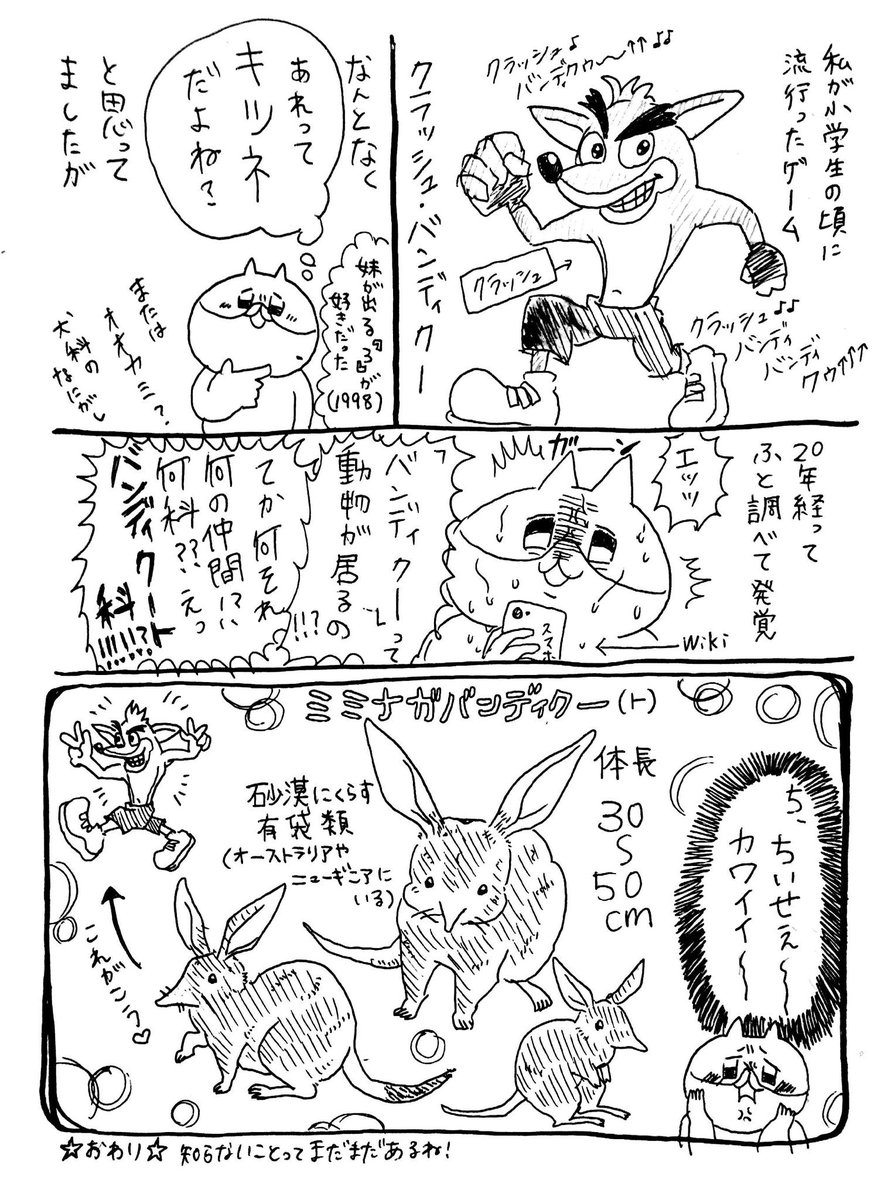 私が小学生の頃に
流行ったゲーム
クラッシュ♪
バンディクゥ〜↑↑♪♪
クラッシュ
クラッシュ♪♪
バンディ
バンディ
クゥ↑↑↑
クラッシュ・バンディクー
なんとなく
あれって
キツネ
だよね?
と思って
ましたが
妹が出る「3」が
好きだった
(1998)
または
オオカミ?
犬科の
なにがし
20年経って
ふと調べて発覚
エッッ
ガーン
スマホ
Wiki
「バンディクー」って
動物が居るの
!!?
てか何それ
何の仲間!?
何科??えっ
バンディクート
科!!!!!?!
ミミナガバンディクー(ト)
体長
30
〜
50
cm
砂漠にくらす
有袋類
(オーストラリアや
ニューギニアに
いる)
これがこう♡
ち、ちいせぇ〜
カワイイ〜
☆おわり☆ 知らないことってまだまだあるね!